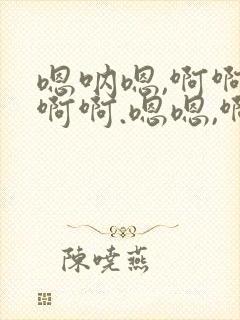 嗯呐嗯,啊啊
啊啊.嗯嗯,啊
陈晓燕